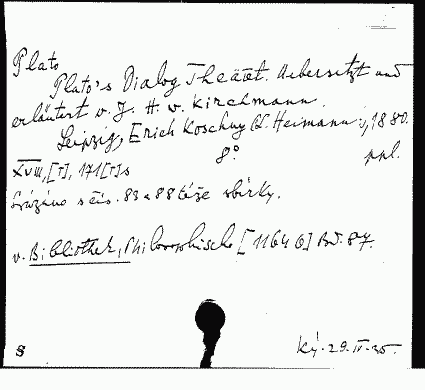 Plato
Plato's Dialog Theätet. Uebersetzt und
erläutert v. J. H. v. Kirchmann.
Leipzig, Erich Koschny (L. Heimann), 1880.
8° ppl.
XVIII, [1], 171 [1] s
Svázáno s čís. 83 a 88 téže sbírky.
v. Bibliothek, Philosophische [11646] Bd. 87.
S
Ký. 29.IV.35.